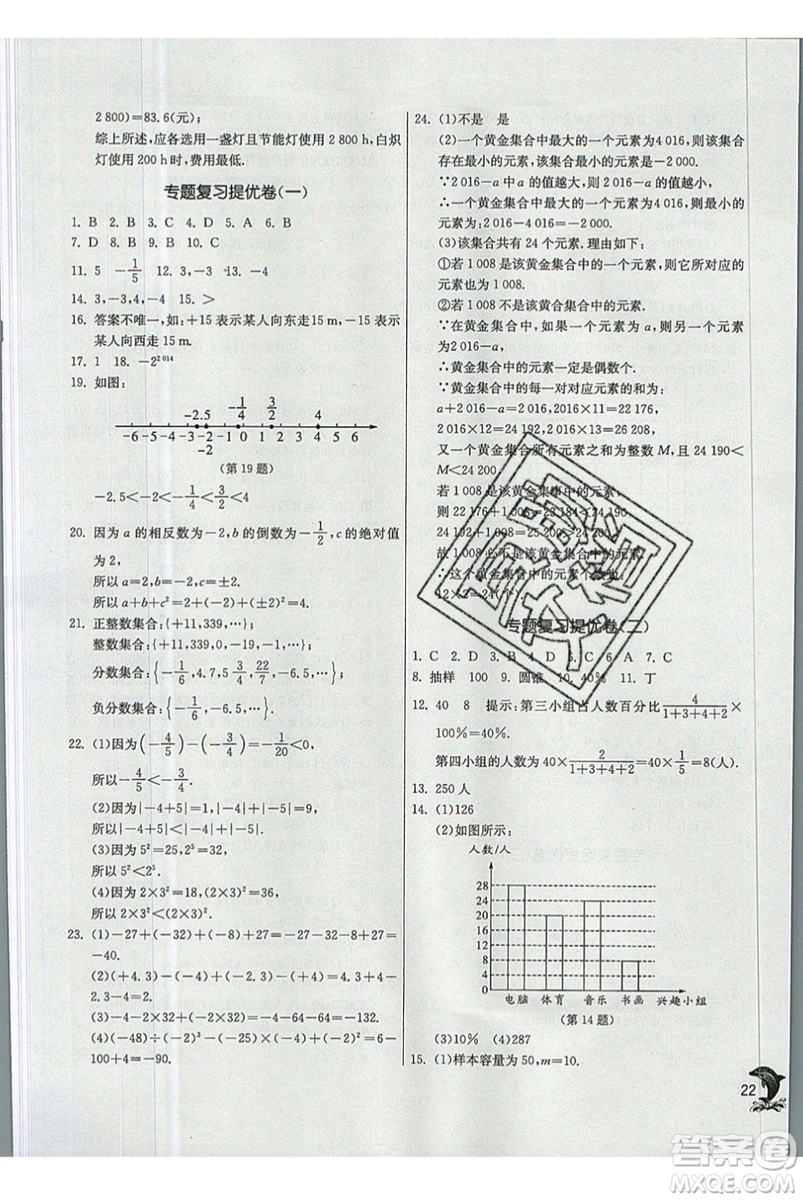 2 800)=83.6(元);
综上所述,应各选用一盏灯且节能灯使用 2 800 h,白炽
灯使用 200 h 时,费用最低.
专题复习提优卷(一)
1. B 2. B 3. C 4. D 5. A 6. B
7. D 8. B 9. B 10. C
11. 5 -1/5 12. 3,-3 13. -4
14. 3,-3,4,-4 15. >
16. 答案不唯一,如:+15 表示某人向东走15 m,-15 表示
某人向西走 15 m.
17. 1 18. -2^2 014
19. 如图:
-2.5 -1/4 3/2
-6 -5 -4 -3 -2 -1 0 1 2 3 4 5 6
-2
(第 19 题)
-2.5<-2<-1/4<3/2<4
20. 因为 a 的相反数为-2,b 的倒数为-1/2,c 的绝对值
为 2,
所以 a=2,b=-2,c=±2.
所以 a+b+c²=2+(-2)+(±2)²=4.
21. 正整数集合:{+11,339,…}
整数集合:{+11,339,0,-19,-1,…}
分数集合:{-1/6,4.7,5 3/4,22/7,-6.5,…};
负分数集合:{-1/6,-6.5,…}.
22. (1)因为(-4/5)-(-3/4)=-1/20<0,
所以-4/5<-3/4.
(2)因为|-4+5|=1,|-4|+|5|=9,
所以|-4+5|<|-4|+|5|.
(3)因为5²=25,2⁵=32,
所以 5²<2⁵.
(4)因为 2×3²=18,(2×3)²=36,
所以 2×3²<(2×3)².
23. (1)-27+(-32)+(-8)+27=-27-32-8+27=
-40.
(2)(+4.3)-(-4)+(-2.3)-(+4)=4.3+4-
2.3-4=2.
(3)-4-2×32+(-2×32)=-4-64-64=-132.
(4)(-48)÷(-2)³-(-25)×(-4)+(-2)²=6-
100+4=-90.
24. (1)不是 是
(2)一个黄金集合中最大的一个元素为4 016,则该集合
存在最小的元素,该集合最小的元素是-2 000.
∵2 016-a 中 a 的值越大,则 2 016-a 的值越小,
∴一个黄金集合中最大的一个元素为4 016,则最小的
元素为2 016-4 016=-2 000.
(3)该集合共有 24 个元素. 理由如下:
①若 1 008 是该黄金集合中的一个元素,则它所对应的
元素也为 1 008.
②若 1 008 不是该黄金集合中的元素.
∵在黄金集合中,如果一个元素为 a,则另一个元素
为2 016-a,
∴黄金集合中的元素一定是偶数个.
∵黄金集合中的每一对对应元素的和为:
a+2 016-a=2 016,2016×11=22 176,
2 016×12=24 192,2 016×13=26 208,
又一个黄金集合所有元素之和为整数 M,且 24 190<
M<24 200,
若 1 008 是该黄金集合中的元素,
则 22 176+1 008<24 190
24 192+1 008>24 200
故 1 008 必不是该黄金集合中的元素.
∴这个黄金集合中的元素个数为:
12×2=24(个).
专题复习提优卷(二)
1. C 2. D 3. D 4. B 5. A 6. A 7. C
8. 抽样 9. 圆锥 10. 40% 11. 丁
12. 40 8 提示:第三小组占人数百分比 4/(1+3+4+2)×
100%=40%.
第四小组的人数为 40×2/(1+3+4+2)=40×1/5=8(人).
13. 250 人
14. (1)126
(2)如图所示:
人数/人
28
24
20
16
12
8
4
0
电脑 体育 音乐 书画 兴趣小组
(第 14 题)
(3)10% (4)287
15. (1)样本容量为 50,m=10.
22
答案圈
MXQE.COM